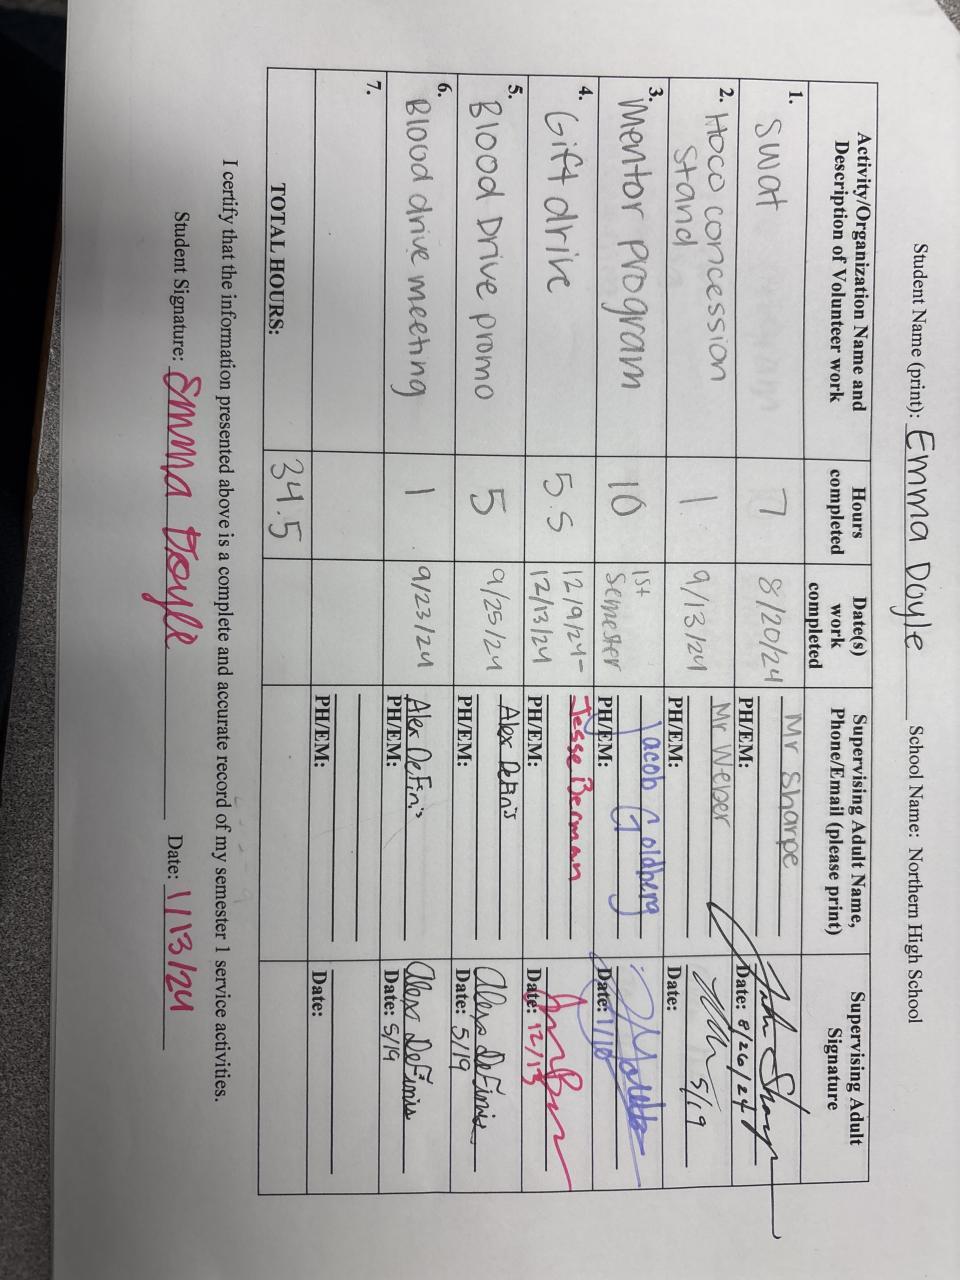 Student Name (print): Emma Doyle School Name: Northern High School
Activity/Organization Name and Description of Volunteer work
Hours completed
Date(s) work completed
Supervising Adult Name, Phone/Email (please print)
Supervising Adult Signature
1. SWAT
7
8/20/24
Mr Sharpe
PH/EM:
Date: 8/26/24
2. Hoco concession
stand
1
9/13/24
Mr Weber
PH/EM:
5/19
Date:
3. Mentor program
10
1st
Semester
Jacob Goldberg
PH/EM:
Date: 1/10
4. Gift drive
5.5
12/9/24-
12/13/24
Jesse Berman
PH/EM:
Date: 12/13
5. Blood Drive promo
5
9/25/24
Alex DeFinis
PH/EM:
Alexa DeFinis
Date: 5/19
6. Blood drive meeting
1
9/23/24
Alex DeFinis
PH/EM:
Alexa DeFinis
Date: 5/19
7.
PH/EM:
Date:
TOTAL HOURS:
34.5
I certify that the information presented above is a complete and accurate record of my semester 1 service activities.
Student Signature: Emma Doyle Date: 1/13/24